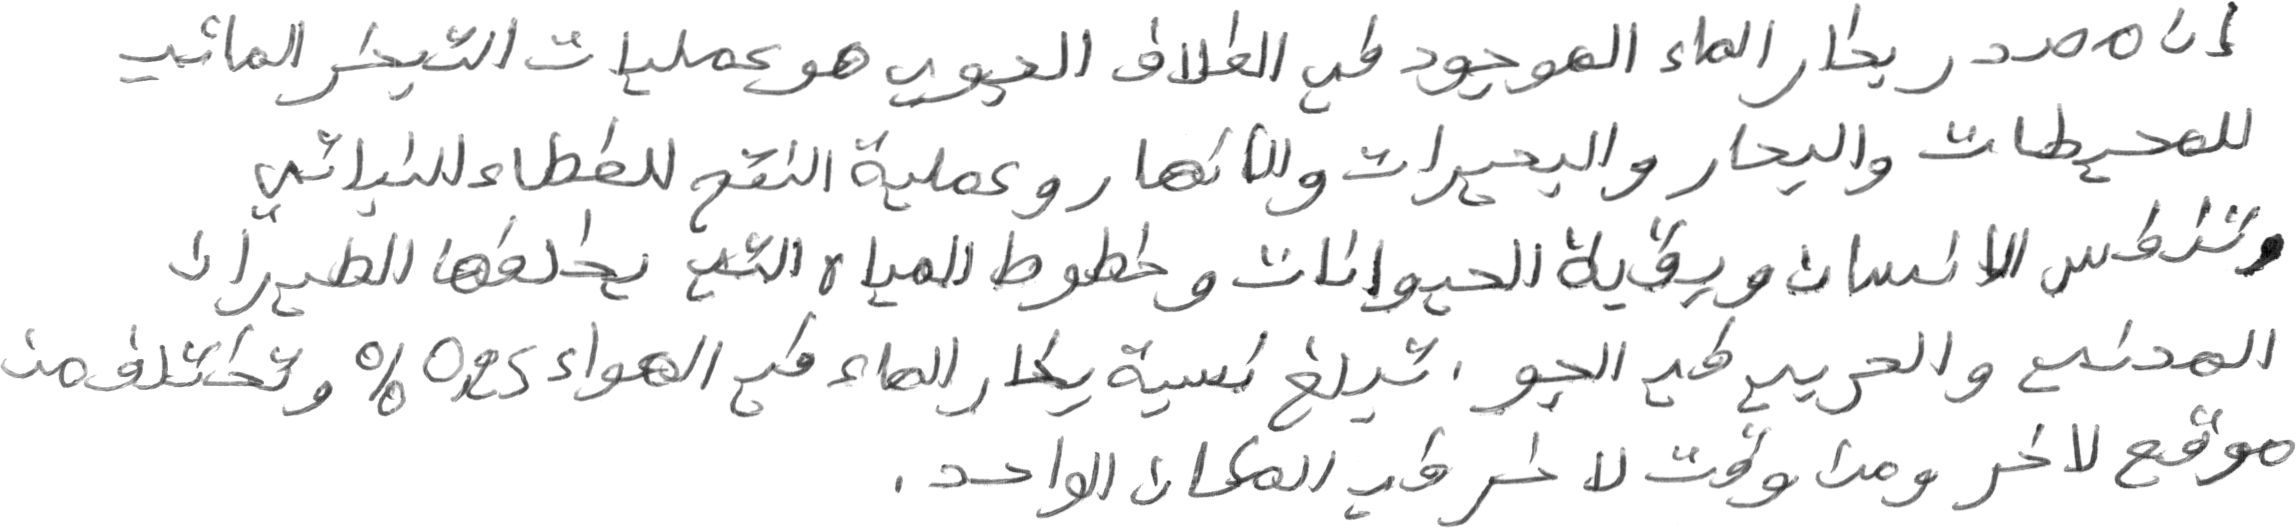 إن مصدر بخار الماء الموجود في الغلاف الجوي هو عمليات التبخر المائي
للمحيطات والبحار والبحيرات والأنهار وعملية النتح للغطاء النباتي
وتنفس الانسان وبقية الحيوانات وخطوط المياه التي يخلفها الطيران
المدني والحربي في الجو . تبلغ نسبة بخار الماء في الهواء 0,25 % وتختلف من
موقع لاخر ومن وقت لاخر في المكان الواحد .